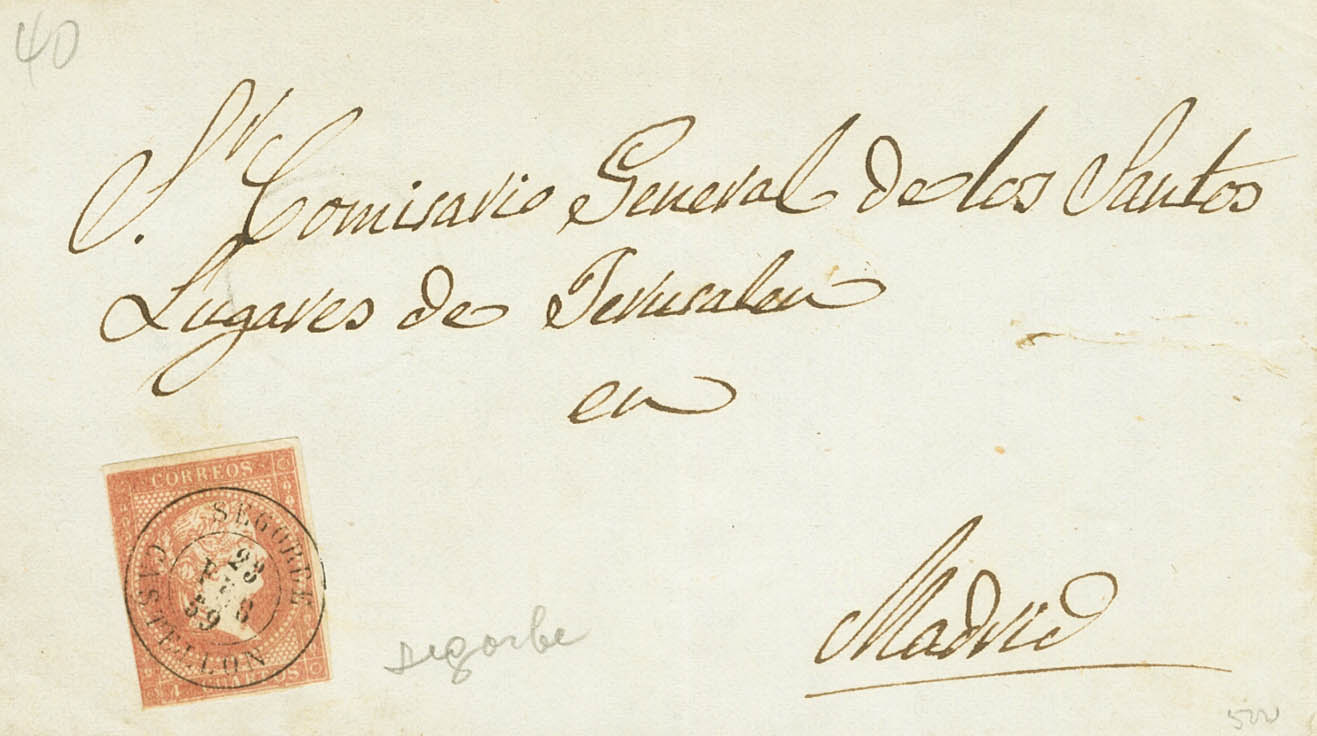 40
Sr. Comisario General de los Santos
Lugares de Jerusalen
en
Madrid
CORREOS
SEGORBE
23
59
CASTELLON
4 CUARTOS
segorbe
500